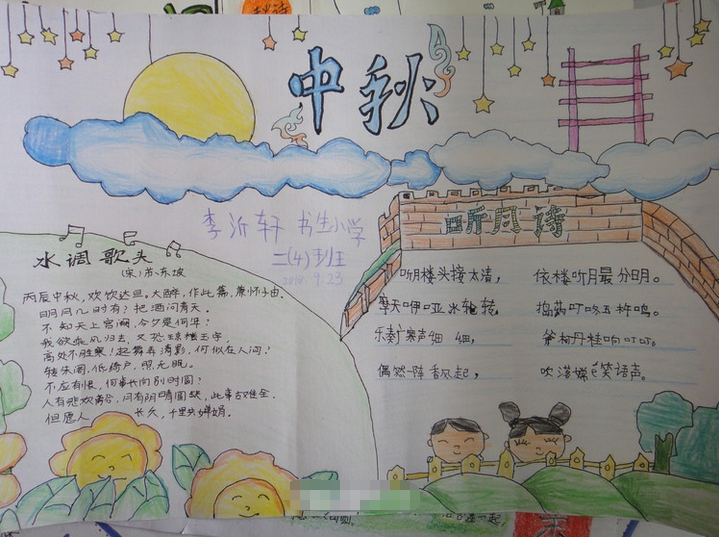 中秋
李沂轩 书生小学
二(4)班
2010.9.23
水调歌头
(宋)苏东坡
丙辰中秋,欢饮达旦。大醉,作此篇,兼怀子由.
明月几时有?把酒问青天.
不知天上宫阙,今夕是何年?
我欲乘风归去,又恐琼楼玉宇,
高处不胜寒!起舞弄清影,何似在人间?
转朱阁,低绮户,照无眠.
不应有恨,何事长向别时圆?
人有悲欢离合,月有阴晴圆缺,此事古难全.
但愿人 长久,千里共婵娟.
听月诗
听楼头接太清, 依楼听月最分明。
摩天咿哑冰轮转, 捣药叮咚玉杵鸣。
乐奏广寒声细 细, 斧柯丹桂响叮叮。
偶然一阵香风起, 吹落嫦娥笑语声。